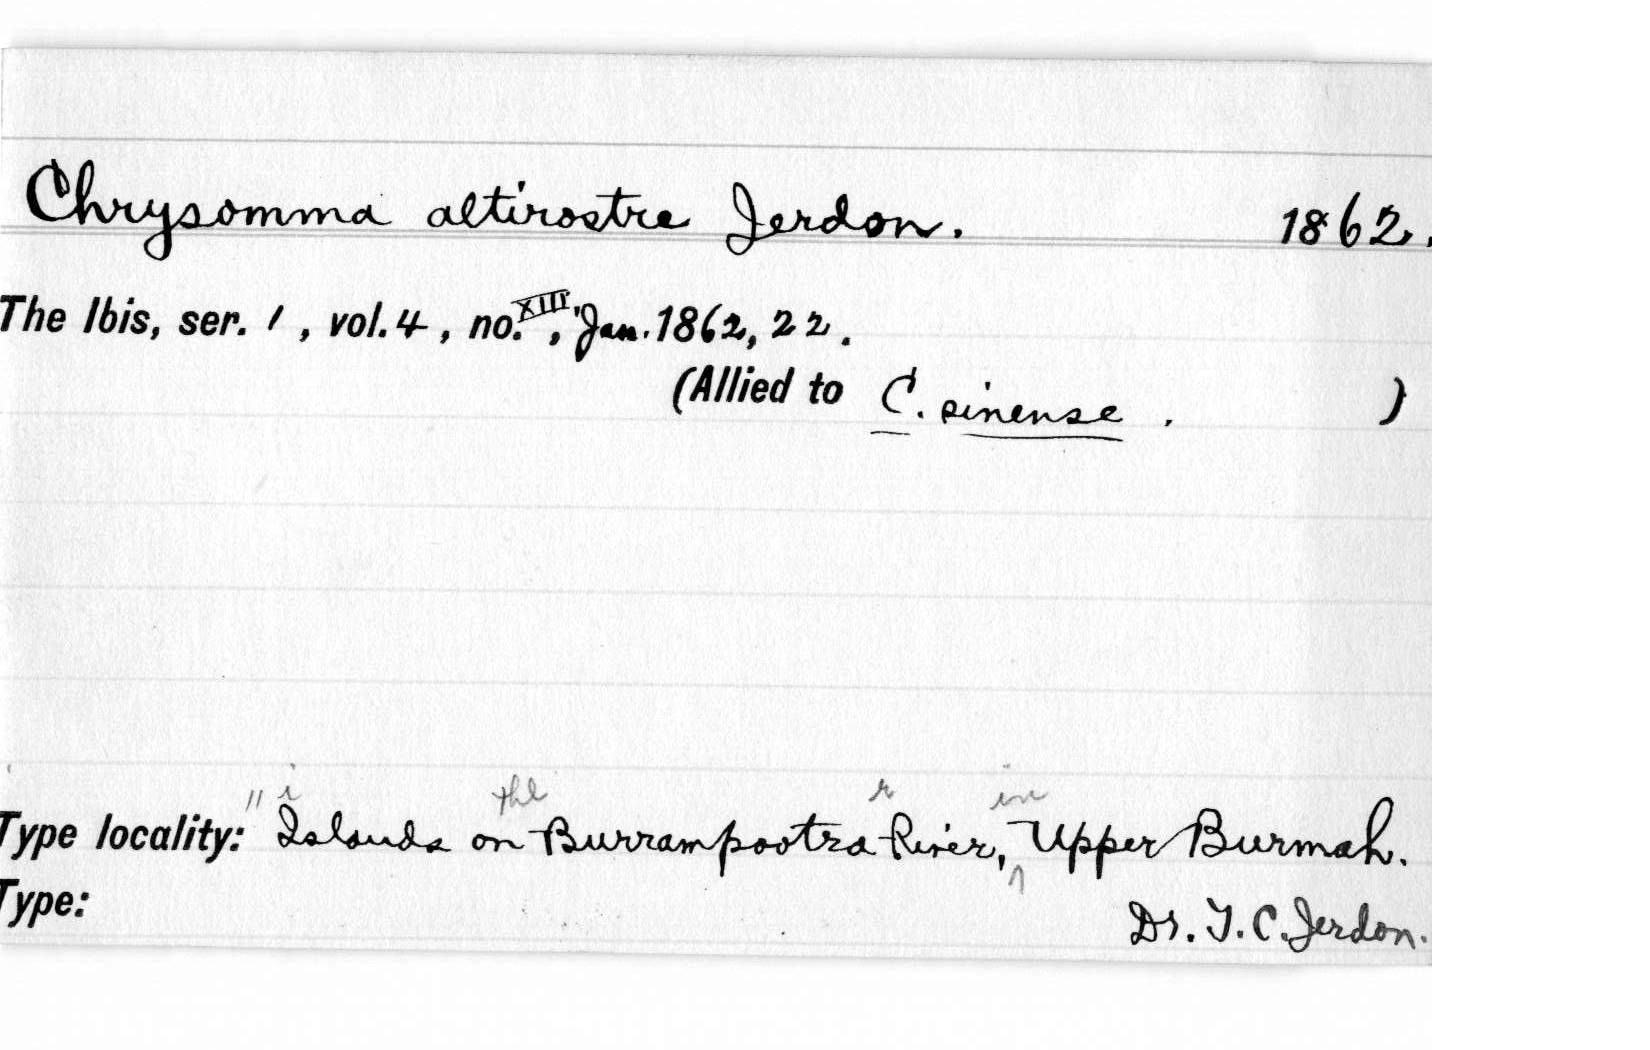 Chrysomma altirostre Jerdon. 1862.
The Ibis, ser. 1, vol. 4, no. XIII, Jan. 1862, 22.
(Allied to C. sinense. )
" i the r in
Type locality: Islands on Burrampootra River, ^ Upper Burmah.
Type: Dr. T. C. Jerdon.